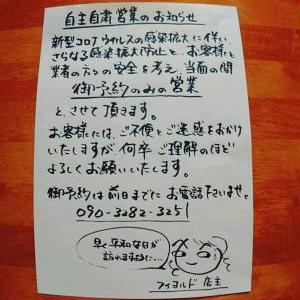 自主自粛営業のお知らせ
新型コロナウイルスの感染拡大に伴い
さらなる感染拡大防止と、お客様と
業者の方々の安全を考え、当面の間
御予約のみの営業
と、させて頂きます。
お客様には、ご不便とご迷惑をおかけ
いたしますが、何卒ご理解のほど
よろしくお願いいたします。
御予約は前日までにお電話下さいませ。
090-3282-3251
早く平和な日が
訪れますように…
フィヨルド 店主